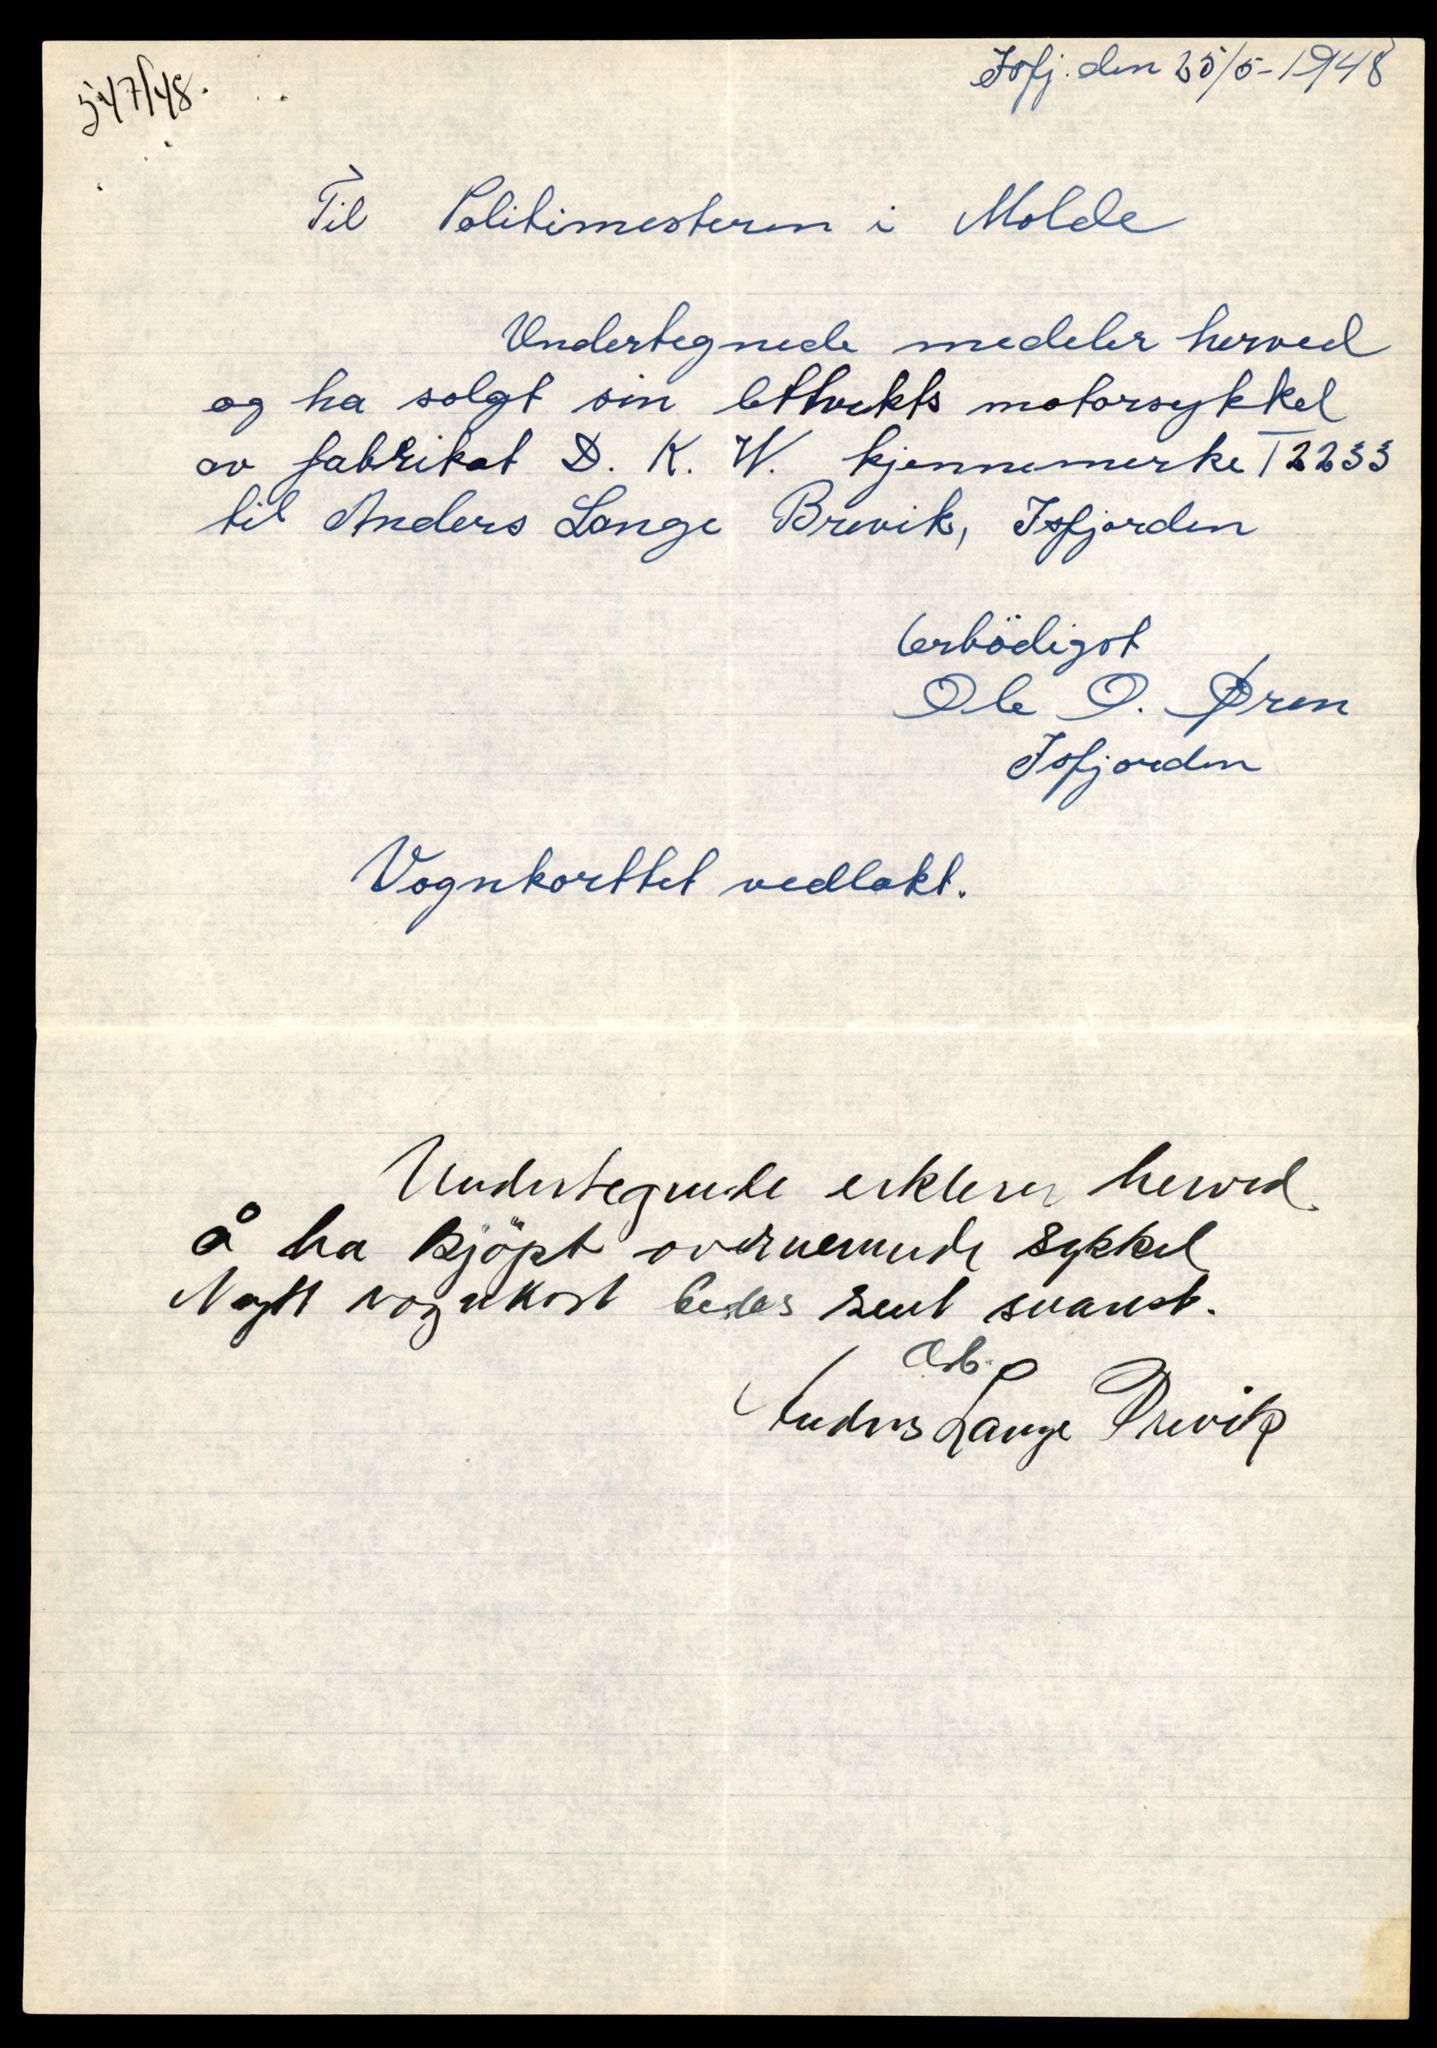 547/48.
Isfj. den 25/5-1948
Til Politimesteren i Molde
Undertegnede medeler herved
og ha solgt sin lettvekts motorsykkel
av fabrikat D. K. W. kjennemerke T 2233
til Anders Lange Brevik, Isfjorden
erbödigst
Ole O. Øren
Isfjorden
Vognkorttet vedlakt.
Undertegnede erklerer herved
å ha kjöpt overnevnede sykkel
Nytt vognkort bedes sent snarest.
Erb.
Anders Lange Brevik